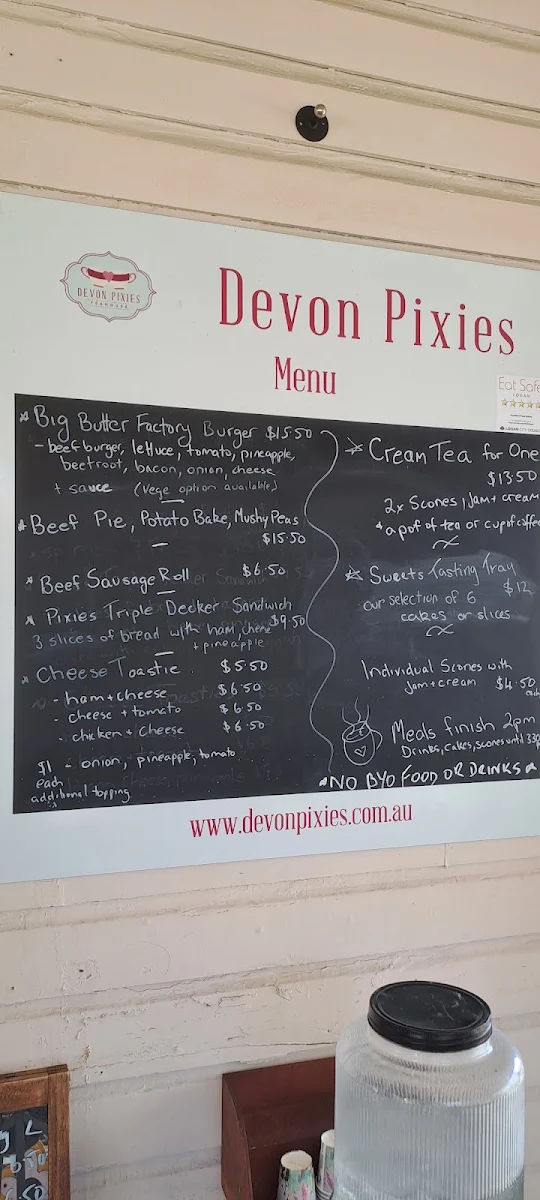 DEVON PIXIES
TEAHOUSE
Devon Pixies
Menu
Eat Safe
LOGAN
LOGAN CITY COUNCIL
* Big Butter Factory Burger $15.50
- beef burger, lettuce, tomato, pineapple,
beetroot, bacon, onion, cheese
+ sauce (vege option available)
* Beef Pie, Potato Bake, Mushy Peas
$15.50
* Beef Sausage Roll $6.50
* Pixies Triple Decker Sandwich
$9.50
3 slices of bread with ham, cheese
+ pineapple
* Cheese Toastie $5.50
- ham + cheese $6.50
- cheese + tomato $6.50
- chicken + cheese $6.50
$1 - onion, pineapple, tomato
each
additional topping
* Cream Tea for One
$13.50
2x Scones, Jam + cream
* a pot of tea or cup of coffee
* Sweets Tasting Tray
$12
our selection of 6
cakes or slices
Individual Scones with
Jam + cream $4.50
each
Meals finish 2pm
Drinks, cakes, scones until 330
* NO BYO FOOD OR DRINKS *
www.devonpixies.com.au